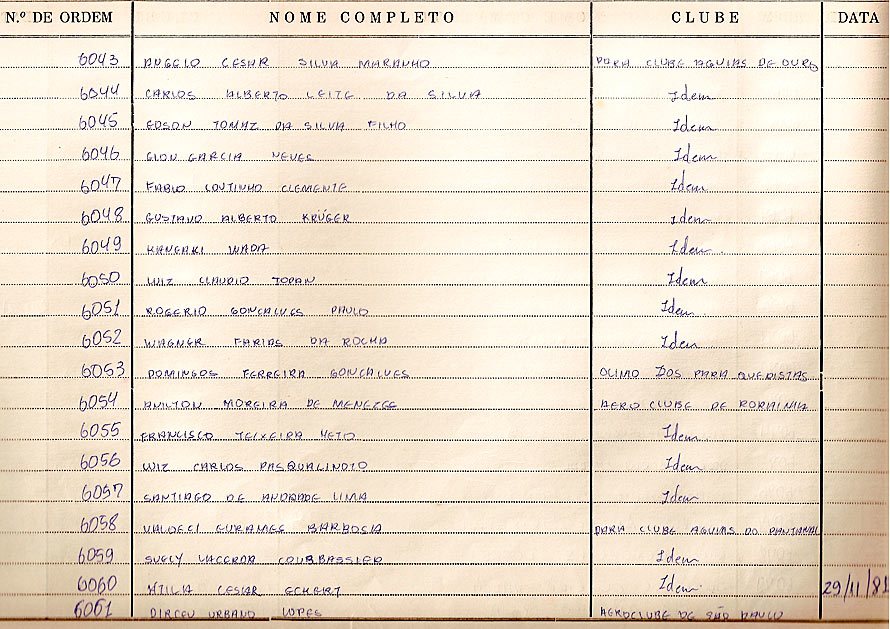 N.º DE ORDEM NOME COMPLETO CLUBE DATA
6043 ANGELO CESAR SILVA MARANHO PARA CLUBE AGUIAS DE OURO
6044 CARLOS ALBERTO LEITE DA SILVA Idem
6045 EDSON TOMAZ DA SILVA FILHO Idem
6046 GARCIA NEVES Idem
6047 FABIO COUTINHO CLEMENTE Idem
6048 GUSTAVO ALBERTO KRÜGER Idem
6049 WADA Idem
6050 LUIZ CLAUDIO TOPAN Idem
6051 ROGERIO GONCALVES PAULO Idem
6052 WAGNER FARIAS DA ROCHA Idem
6053 DOMINGOS FERREIRA GONCALVES DOS PARA QUEDISTAS
6054 MOREIRA DE MENEZES AERO CLUBE DE RORAIMA
6055 FRANCISCO TEIXEIRA NETO Idem
6056 LUIZ CARLOS Idem
6057 SANTIAGO DE ANDRADE LIMA Idem
6058 VALDECI BARBOSA PARA CLUBE AGUIAS DO PANTANAL
6059 SUELY LACERDA COURBASSIER Idem
6060 ATILA CESAR ECKERT Idem 29/11/81
6061 DIRCEU URBANO LOPES AEROCLUBE DE SÃO PAULO